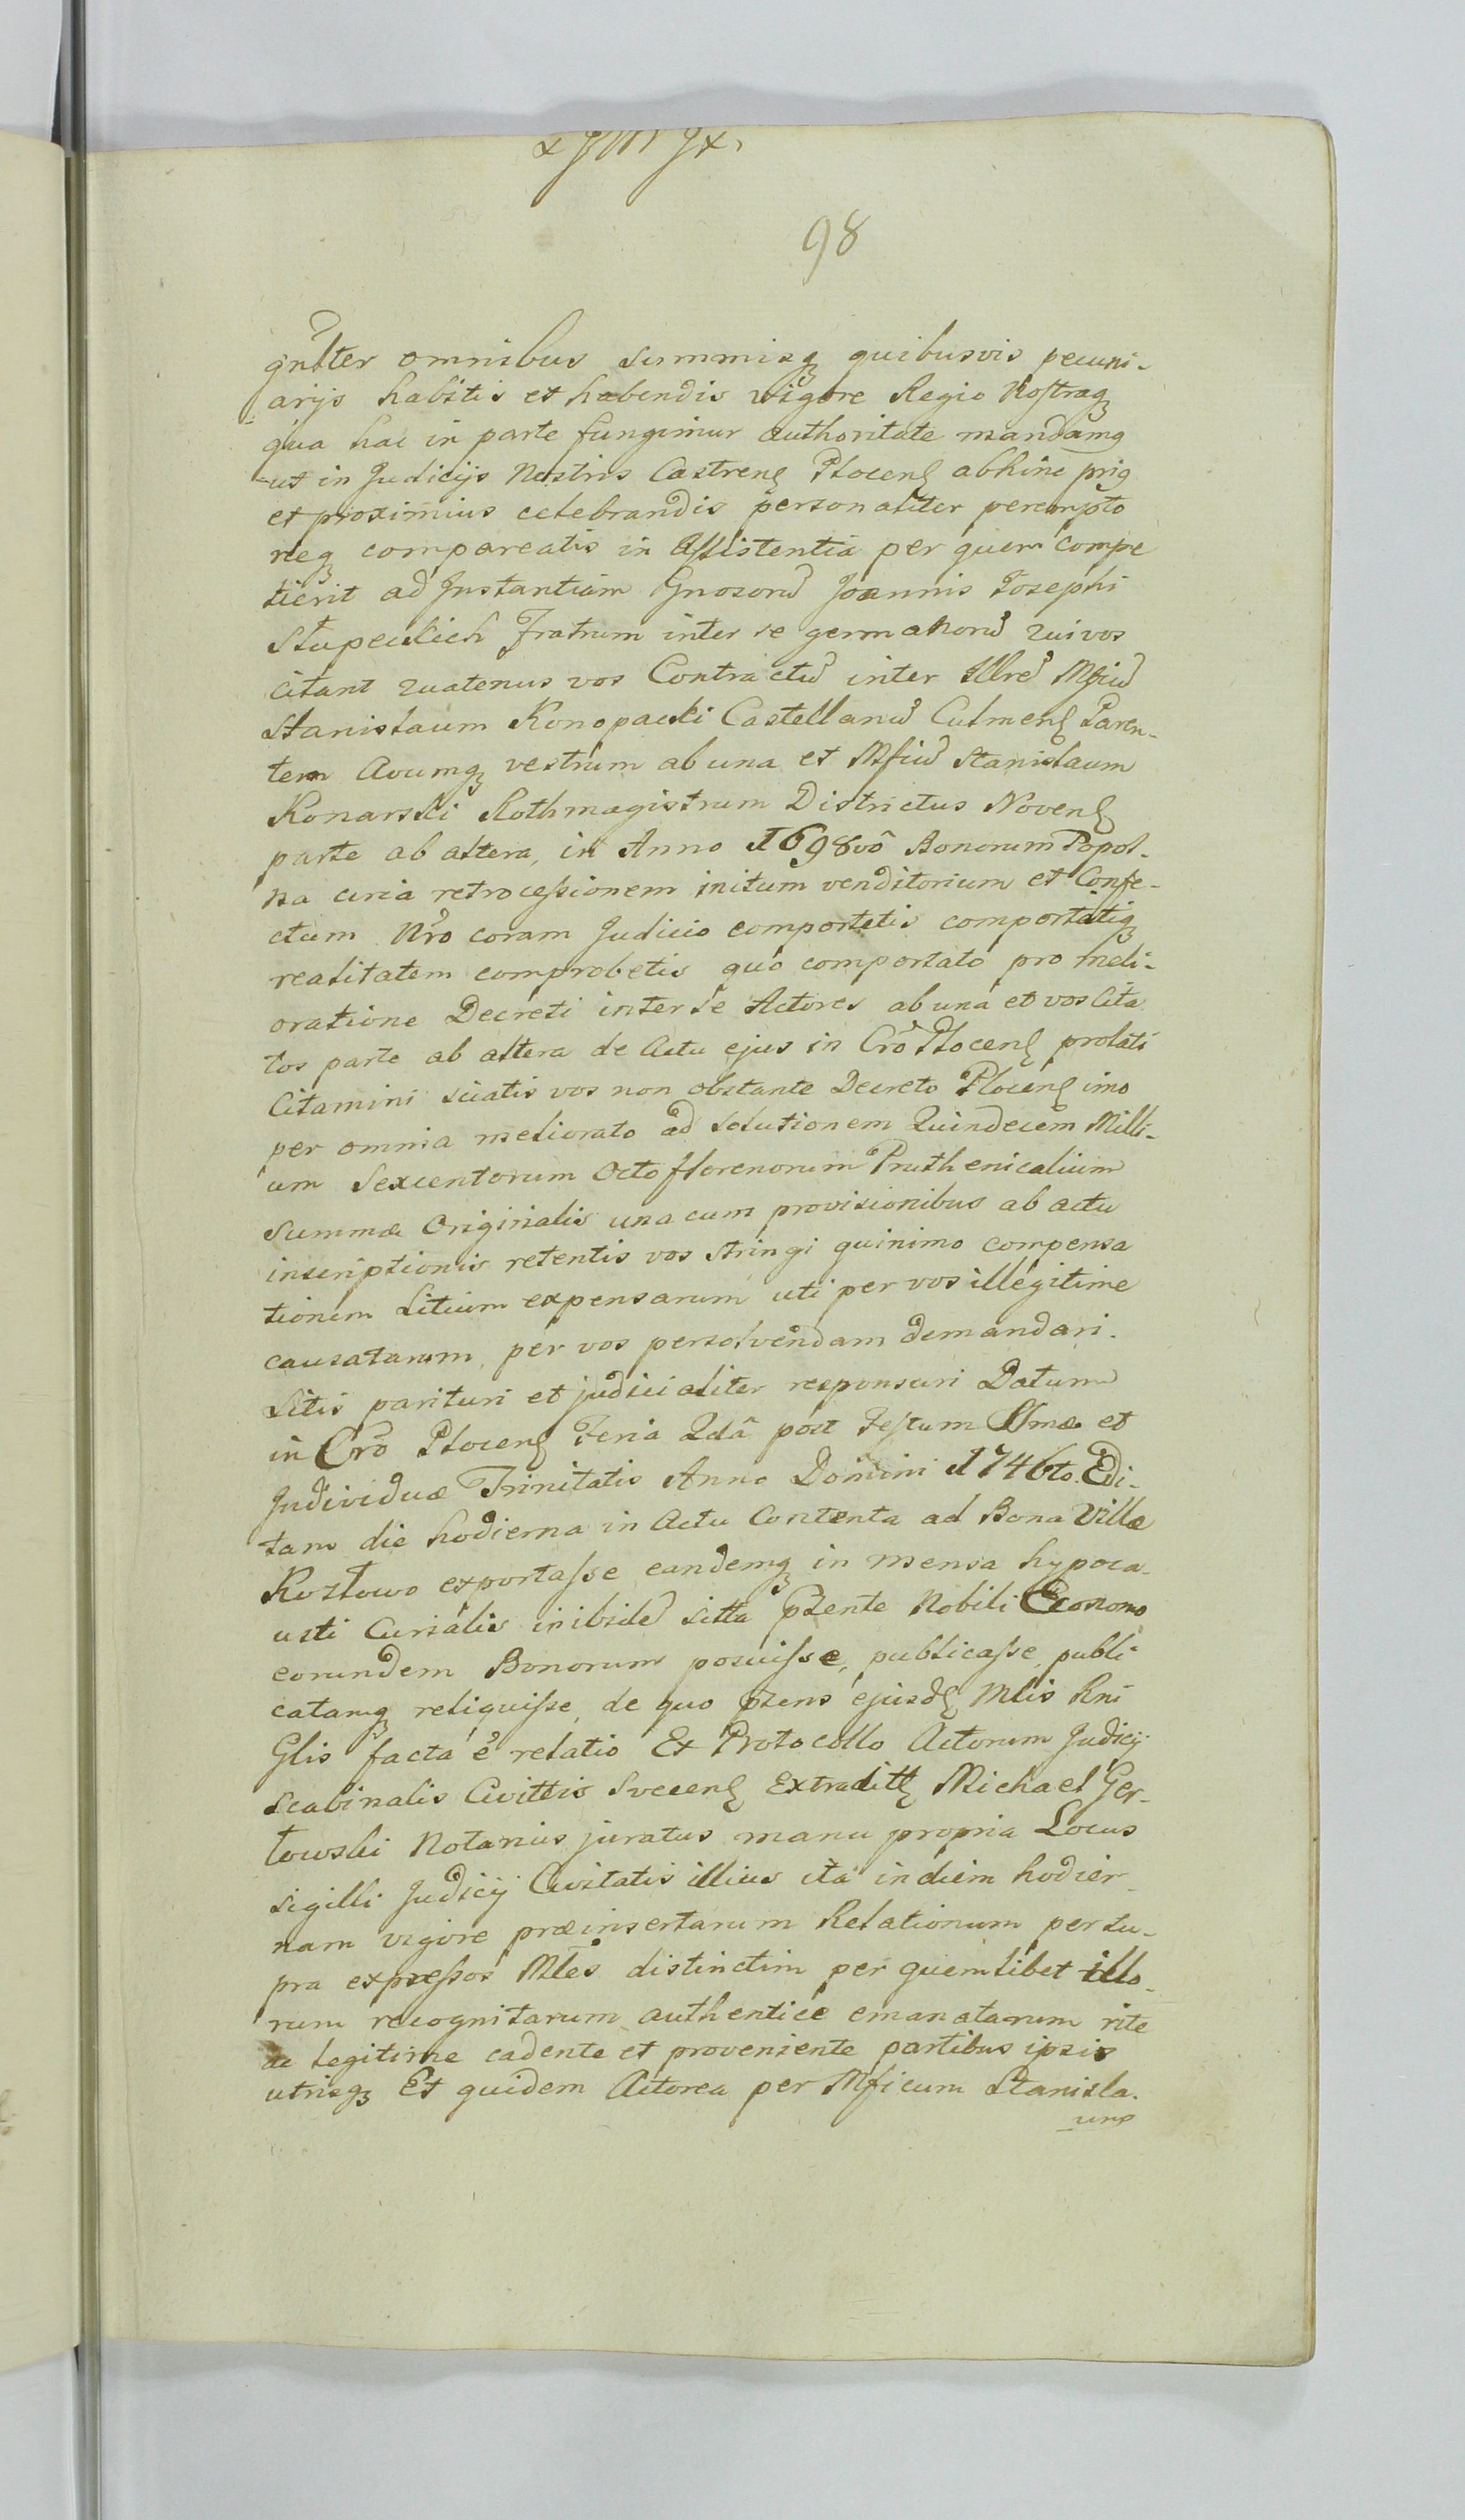 98
gnlter omnibus summisq quibusvis pecuni-
arijs habitis et habendis vigore Regio Nostraq
qua hac in parte fungimur authoritate mandamq
ut in Judicijs Nostris Castrens Plocens abhinc priq
et proximius celebrandis personaliter perempto
rieq compareatis in Assistentia per quem compe
tierit ad Instantiam Gnosorum Joannis Josephi
Słupeckich Fratrum inter se germanorum qui vos
citant quatenus vos Contractum inter Illrem Mficum
Stanislaum Konopacki Castellanum Culmens Paren-
tem Avumq vestrum ab una et Mficum Stanislaum
Konarski Rothmagistrum Districtus Novens
parte ab altera, in Anno 1698vô Bonorum Topol-
na circa retrocessionem initum venditorium et Confe-
ctum Nro coram Judicio comportetis comportatiq
realitatem comprobetis quo comportato pro meli-
oratione Decreti inter se Actores ab una et vos Cita
tos parte ab altera de Actu ejus in Cro Plocens prolati
Citamini sciatis vos non obstante Decreto Plocens imo
per omnia meliorato ad solutionem Quindecem Milli-
um Sexcentorum Octo florenorum Pruthenicalium
Summæ Originalis una cum provisionibus ab actu
inscriptionis retentis vos stringi quinimo compensa
tionem Litium expensarum uti per vos illegitime
causatarum, per vos persolvendam demandari.
Sitis parituri et judicialiter responsuri Datum
in Cro Plocens Feria 2dâ post Festum SSmæ et
Individuæ Trinitatis Anno Domini 1746to. Edi-
tam die hodierna in Actu Contenta ad Bona Villæ
Kozłowo exportasse eandemq in mensa hypoca-
usti Curialis inibidem sitta psente Nobili Economo
eorundem Bonorum posuisse, publicasse, publi
catamq reliquisse, de quo psens ejusd Mlis Rni
Glis facta é relatio Ex Protocollo Actorum Judicij
Scabinalis Civittis Svecens Extraditt Michael Ger-
łowski Notarius juratus manu propria Locus
Sigilli Judicij Civitatis illius ita in diem hodier-
nam vigore præinsertarum Relationum per su-
pra expressos Mles distinctim per quemlibet illo-
rum recognitarum authentice emanatarum rite
ac legitime cadente et proveniente partibus ipsis
utrisq Et quidem Actorea per Mficum Stanisla-
um